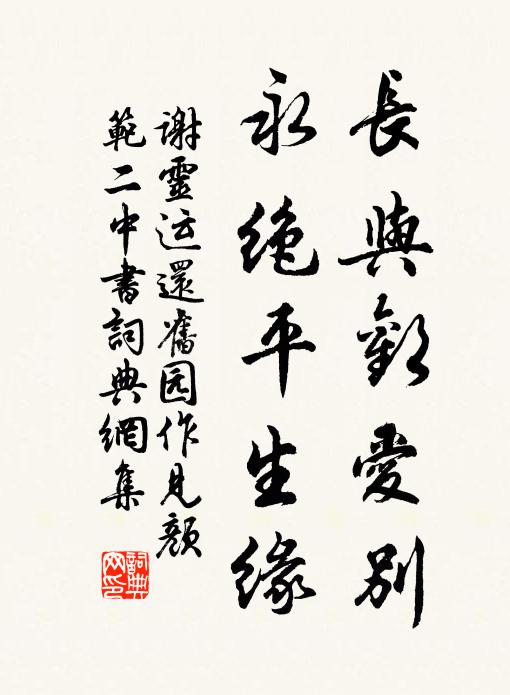 長與歡愛別
永絶平生緣
謝靈运還舊园作見顏
範二中書詞典網集
詞典
网印